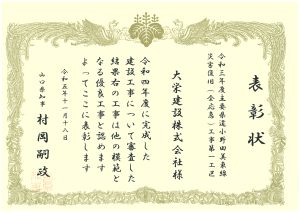 表彰状
令和三年度主要県道小野田美東線
災害復旧（全応急）工事第一工区
大栄建設株式会社様
令和四年度に完成した
建設工事について審査した
結果右の工事は他の模範と
なる優良工事と認めます
よってここに表彰します
令和五年十一月十八日
山口県知事 村岡嗣政